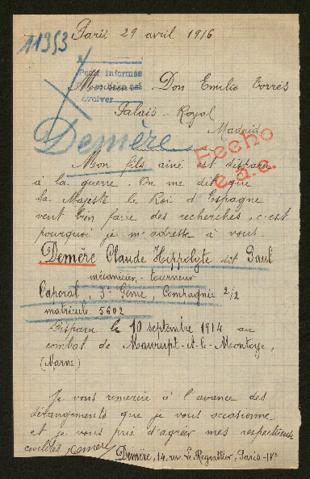 Paris 29 avril 1916
11353
Pedir informes
devolver
Monsieur Don Emilio Torres
Palais-Royal
Madrid
Demère
Fecho
Mon fils aîné est disparu
à la guerre. On me dit que
sa Majesté le Roi d'Espagne
veut bien faire des recherches, c'est
pourquoi je m'adresse à vous.
Demère Claude Hippolyte dit Paul
mécanicien-tourneur
Caporal, 3e Génie, Compagnie 2/2
matricule 5602
Disparu le 10 septembre 1914 au
combat de Maurupt-et-le-Montoye,
(Marne)
Je vous remercie à l'avance des
dérangements que je vous occasionne
et je vous prie d'agréer mes respectueuses
civilités, Demère
Demère, 14, rue Le Regrattier, Paris-IVe